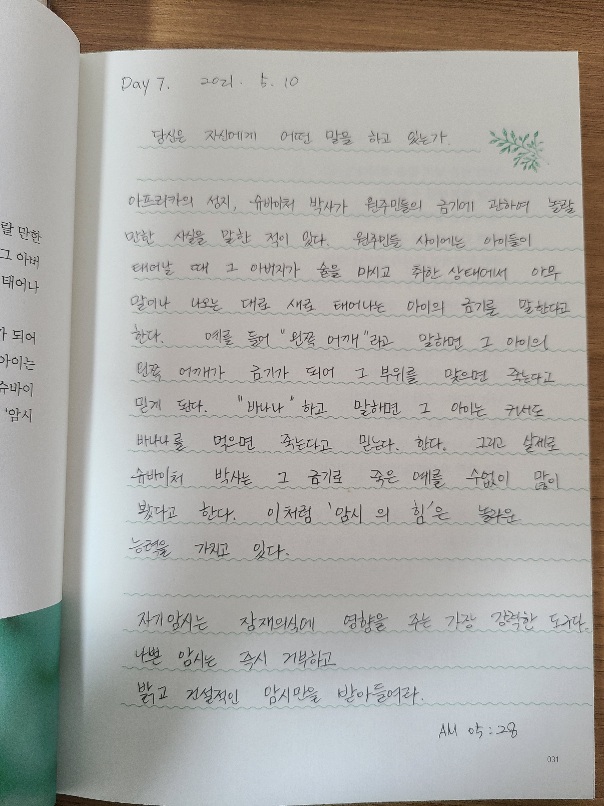 랄 만한
그 아버
태어나
가 되어
아이는
슈바이
'암시
Day 7. 2021. 5. 10
당신은 자신에게 어떤 말을 하고 있는가.
아프리카의 성자, 슈바이처 박사가 원주민들의 금기에 관하여 놀랄
만한 사실을 말한 적이 있다. 원주민들 사이에는 아이들이
태어날 때 그 아버지가 술을 마시고 취한 상태에서 아무
말이나 나오는 대로 새로 태어나는 아이의 금기를 말한다고
한다. 예를 들어 "왼쪽 어깨"라고 말하면 그 아이의
왼쪽 어깨가 금기가 되어 그 부위를 맞으면 죽는다고
믿게 된다. "바나나"하고 말하면 그 아이는 커서도
바나나를 먹으면 죽는다고 믿는다. 한다. 그리고 실제로
슈바이처 박사는 그 금기로 죽은 예를 수없이 많이
봤다고 한다. 이처럼 '암시의 힘'은 놀라운
능력을 가지고 있다.
자기암시는 잠재의식에 영향을 주는 가장 강력한 도구다.
나쁜 암시는 즉시 거부하고
밝고 건설적인 암시만을 받아들여라.
AM 05:28
031